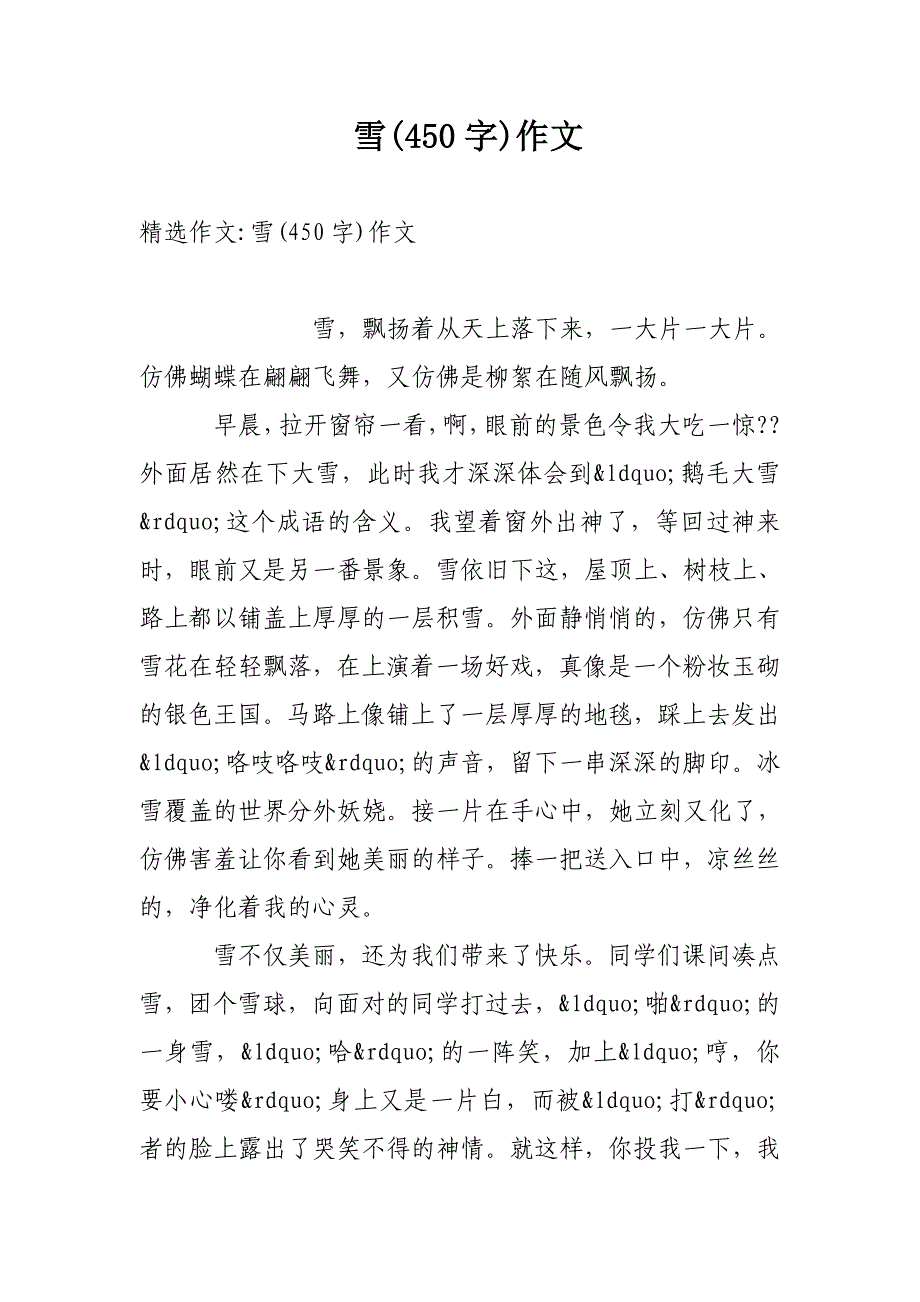 雪(450字)作文
精选作文:雪(450字)作文
雪，飘扬着从天上落下来，一大片一大片。
仿佛蝴蝶在翩翩飞舞，又仿佛是柳絮在随风飘扬。
早晨，拉开窗帘一看，啊，眼前的景色令我大吃一惊??
外面居然在下大雪，此时我才深深体会到&ldquo;鹅毛大雪
&rdquo;这个成语的含义。我望着窗外出神了，等回过神来
时，眼前又是另一番景象。雪依旧下这，屋顶上、树枝上、
路上都以铺盖上厚厚的一层积雪。外面静悄悄的，仿佛只有
雪花在轻轻飘落，在上演着一场好戏，真像是一个粉妆玉砌
的银色王国。马路上像铺上了一层厚厚的地毯，踩上去发出
&ldquo;咯吱咯吱&rdquo;的声音，留下一串深深的脚印。冰
雪覆盖的世界分外妖娆。接一片在手心中，她立刻又化了，
仿佛害羞让你看到她美丽的样子。捧一把送入口中，凉丝丝
的，净化着我的心灵。
雪不仅美丽，还为我们带来了快乐。同学们课间凑点
雪，团个雪球，向面对的同学打过去，&ldquo;啪&rdquo;的
一身雪，&ldquo;哈&rdquo;的一阵笑，加上&ldquo;哼，你
要小心喽&rdquo;身上又是一片白，而被&ldquo;打&rdquo;
者的脸上露出了哭笑不得的神情。就这样，你投我一下，我